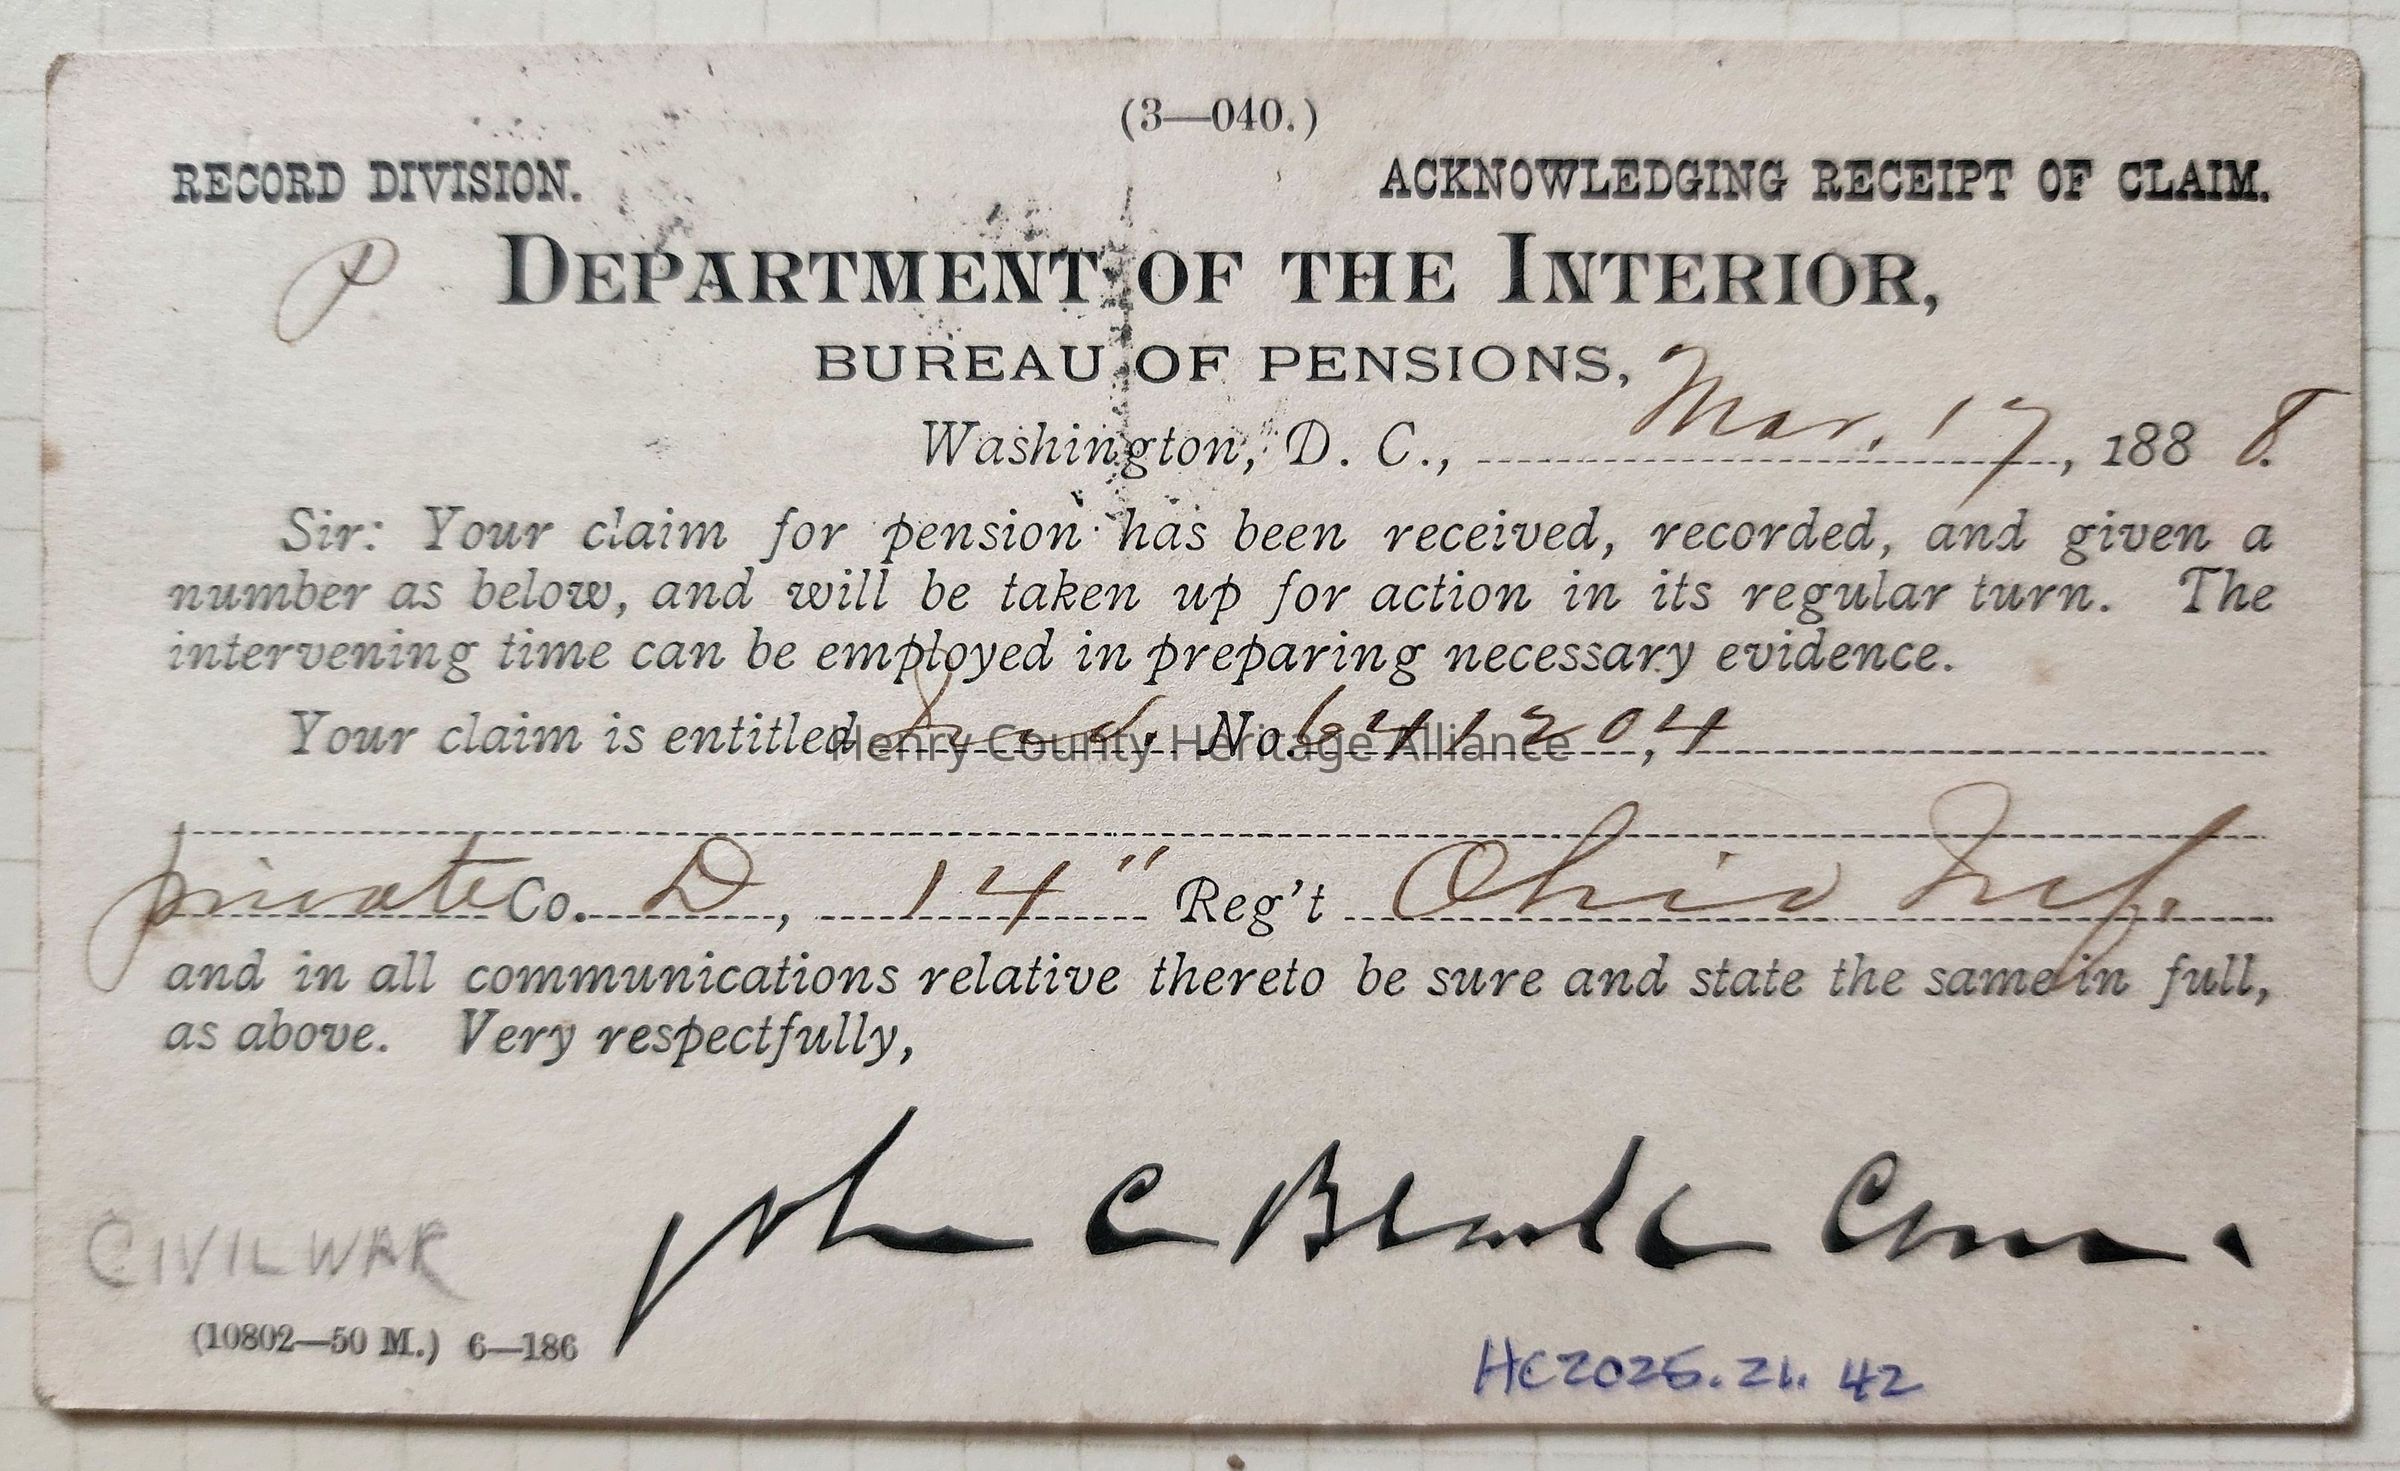 (3—040.)
RECORD DIVISION. ACKNOWLEDGING RECEIPT OF CLAIM.
P
DEPARTMENT OF THE INTERIOR,
BUREAU OF PENSIONS,
Washington, D. C., Mar. 17, 1888.
Sir: Your claim for pension has been received, recorded, and given a
number as below, and will be taken up for action in its regular turn. The
intervening time can be employed in preparing necessary evidence.
Your claim is entitled Inv. No. 641204,
Henry County Heritage Alliance
private Co. D, 14" Reg't Ohio Inf.
and in all communications relative thereto be sure and state the same in full,
as above. Very respectfully,
John C Black Com.
CIVIL WAR
(10802—50 M.) 6—186
HC2025.21.42